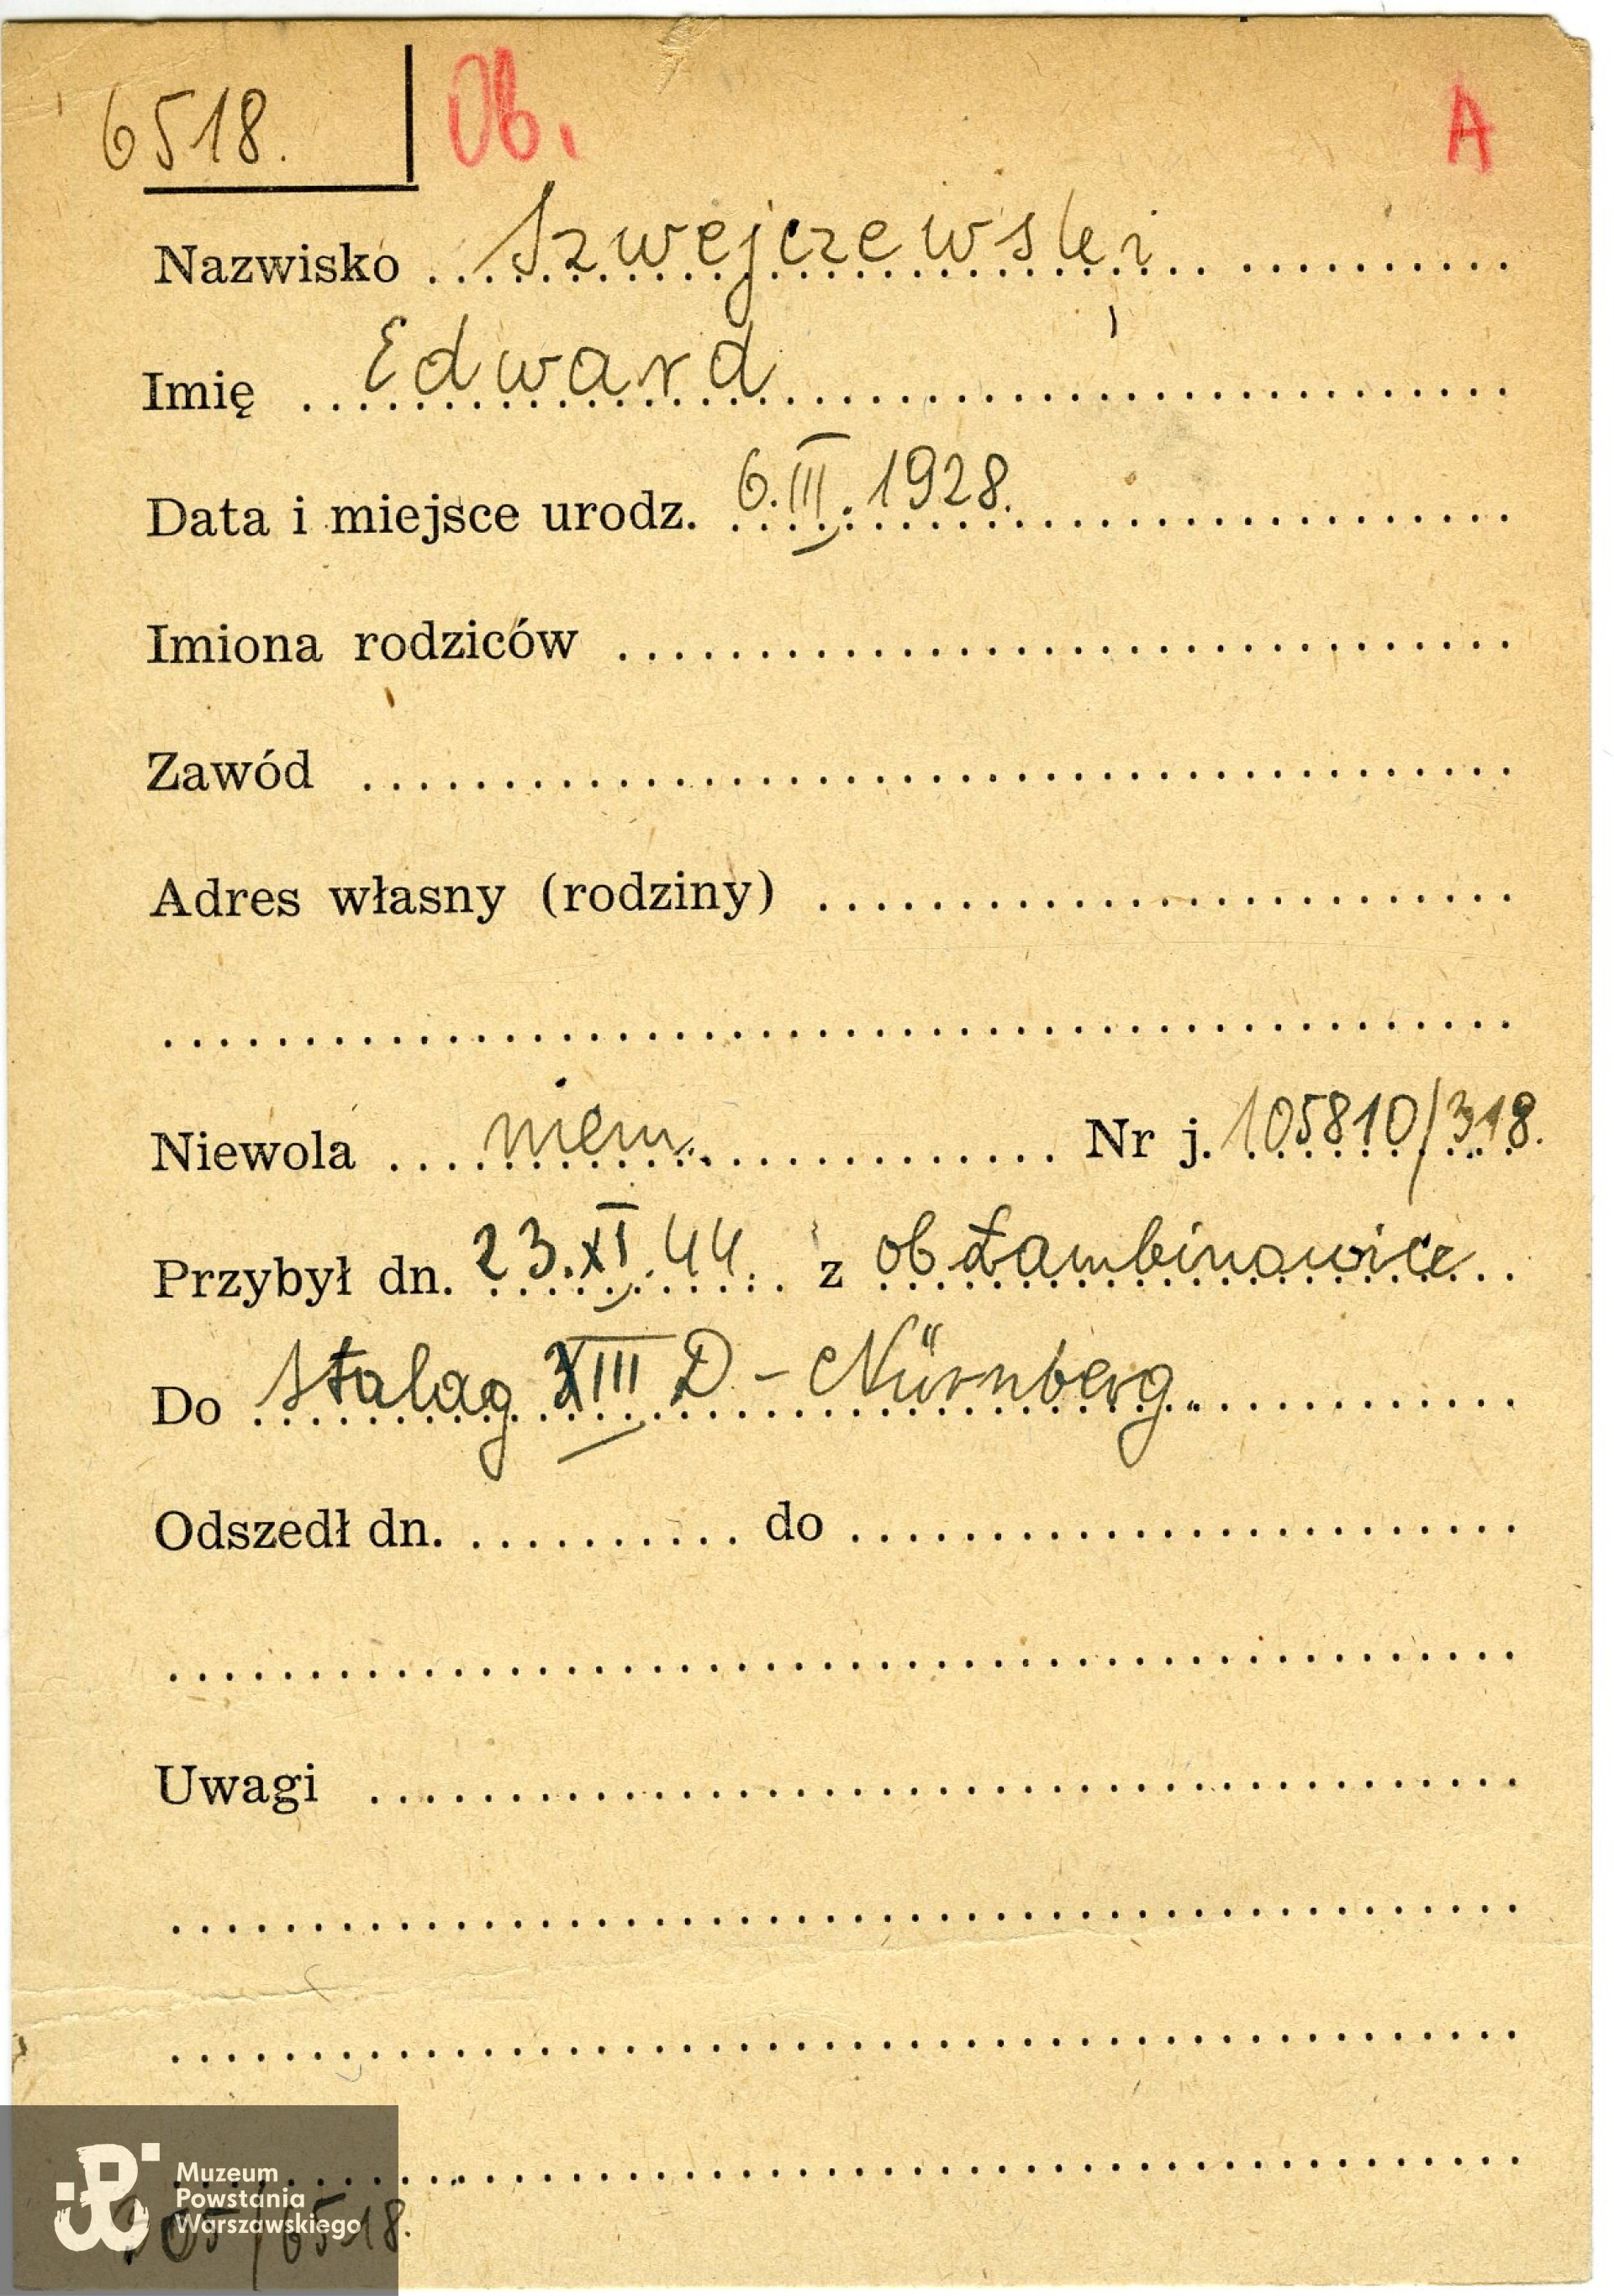 6518. Ob. A
Nazwisko Szwejczewski
Imię Edward
Data i miejsce urodz. 6.III.1928.
Imiona rodziców
Zawód
Adres własny (rodziny)
Niewola niem. Nr j. 105810/318.
Przybył dn. 23.XI.44. z ob Łambinowice
Do Stalag XIII D - Nürnberg.
Odszedł dn. do
Uwagi
Muzeum
Powstania
Warszawskiego
/6518.